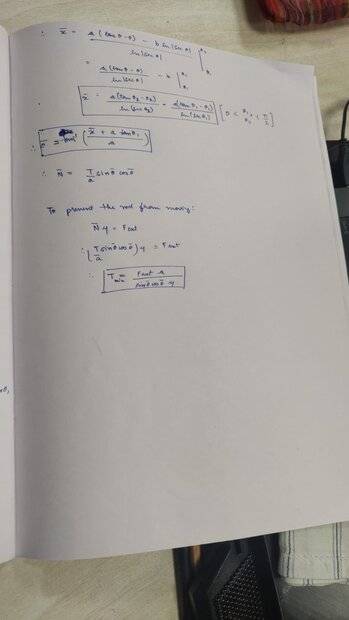 ∴ x̄ = a(tanθ - θ) - b ln|secθ| / ln|secθ| |θ₂ θ₁
= a(tanθ - θ) / ln|secθ| - b |θ₂ θ₁
x̄ = a(tanθ₂ - θ₂) / ln(secθ₂) - a(tanθ₁ - θ₁) / ln(secθ₁) [0 < θ₂, θ₁ < π/2]
∴ θ̄ = tan⁻¹ (x̄ + a tanθ₁ / a)
∴ N̄ = T/a sinθ̄ cosθ̄
To prevent the rod from moving:
N̄ μ = Fext
∴ (T sinθ̄ cosθ̄ / a) μ = Fext
∴ Tmin = Fext a / sinθ̄ cosθ̄ μ